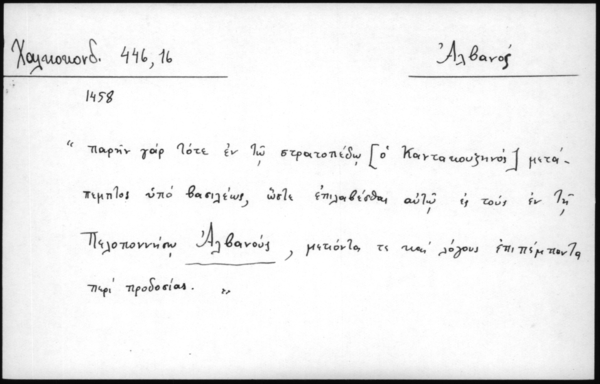 Χαλκοκονδ. 446,16
Ἀλβανός
1458
“ παρῆν γάρ τότε ἐν τῷ στρατοπέδῳ [ὁ Καντακουζηνός] μετά-
πεμπτος ὑπό βασιλέως, ὥστε ἐπιλαβέσθαι αὐτῷ ἐς τούς ἐν τῇ
Πελοποννήσῳ Ἀλβανούς, μετιόντα τε καί λόγους ἐπιπέμποντα
περί προδοσίας. ”